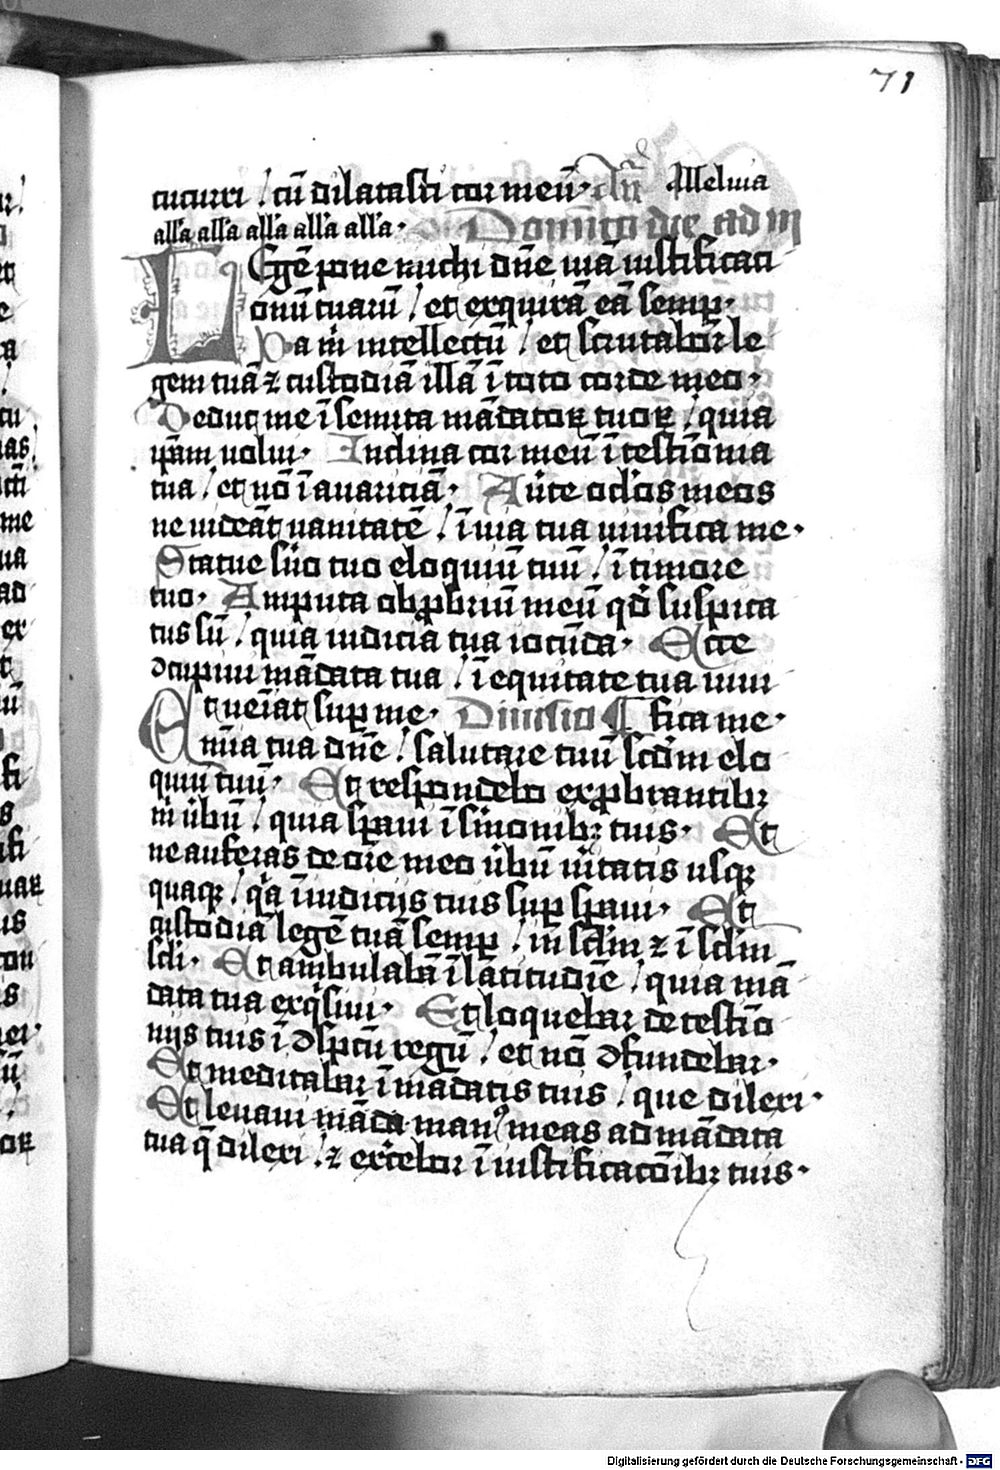 71
cucurri / cū dilatasti cor meū · Añ Alleluia
all'a all'a all'a all'a all'a · Domīco die ad iii
LEgē pone michi dn̄e uiā iustificati
onū tuarū / et exquirā eā semp ·
Da m̄ intellectū / et scrutabor le
gem tuā ⁊ custodiā illā ī toto corde meo ·
Deduc me ī semita mādatoꝝ tuoꝝ / quia
ip̄am uolui · Inclina cor meū ī testīonia
tua / et nō ī auaritiā · Auẜte oc̄los meos
ne uideāt uanitatē / ī uia tua uiuifica me ·
Statue s̄uo tuo eloquiū tuū / ī timore
tuo · Amputa obꝓbriū meū qd̄ suspica
tus sū / quia iudicia tua iocūda · Ecce
ɔcupiui mādata tua / ī equitate tua uiui
Et ueīat sup me · Diuisio ¶ fica me ·
m̄ia tua dn̄e / salutare tuū scd̄m elo
quiū tuū · Et respondebo exꝓbrantibꝫ
m̄ ūbū / quia sp̄aui ī s̄monibꝫ tuis · Et
ne auferas de ore meo ūbū ūitatis usqꝫ
quaqꝫ / q̄a ī iudicijs tuis sup sp̄aui · Et
custodiā legē tuā semp / in sc̄lm ⁊ ī sc̄lm
sc̄li · Et ambulabā ī latitudīe / quia mā
data tua exq̄siui · Et loquebar de testīo
nijs tuis ī ɔspc̄tū regū / et nō ɔfundebar ·
Et meditabar ī mādatis tuis / que dilexi ·
Et leuaui māda manꝰ meas ad mādata
tua q̄ dilexi / ⁊ exc̄ebor ī iustificatōībꝫ tuis ·
Digitalisierung gefördert durch die Deutsche Forschungsgemeinschaft - DFG